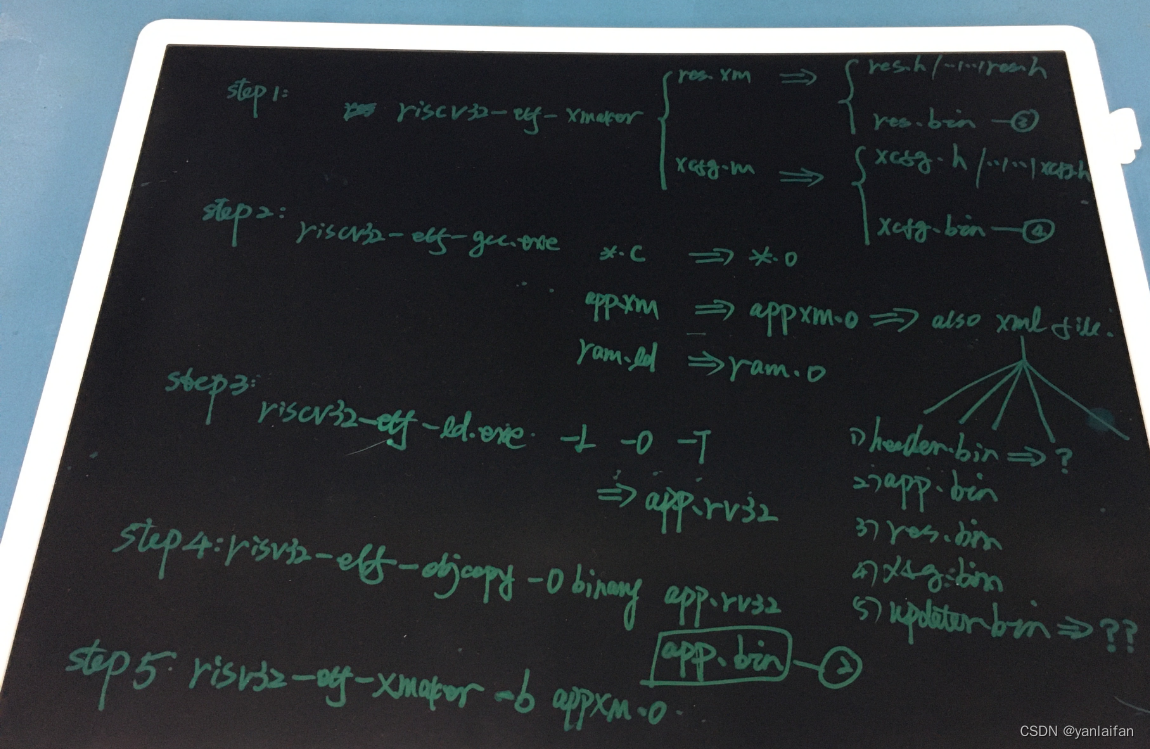 step1:
riscv32-elf-xmaker
res.xm ⇒ res.h /../../res.h
res.bin —③
xcfg.m ⇒ xcfg.h /../../xcfg.h
xcfg.bin —④
step2:
riscv32-elf-gcc.exe *.c ⇒ *.o
app.xm ⇒ appxm.o ⇒ also xml file.
ram.ld ⇒ ram.o
step3:
riscv32-elf-ld.exe -L -O -T
⇒ app.rv32
1)header.bin ⇒ ?
2)app.bin
3)res.bin
4)xcfg.bin
5)updater.bin ⇒ ??
step4: risv32-elf-objcopy -O binary app.rv32
app.bin —②
step5: risv32-elf-xmaker -b appxm.o
CSDN @yanlaifan